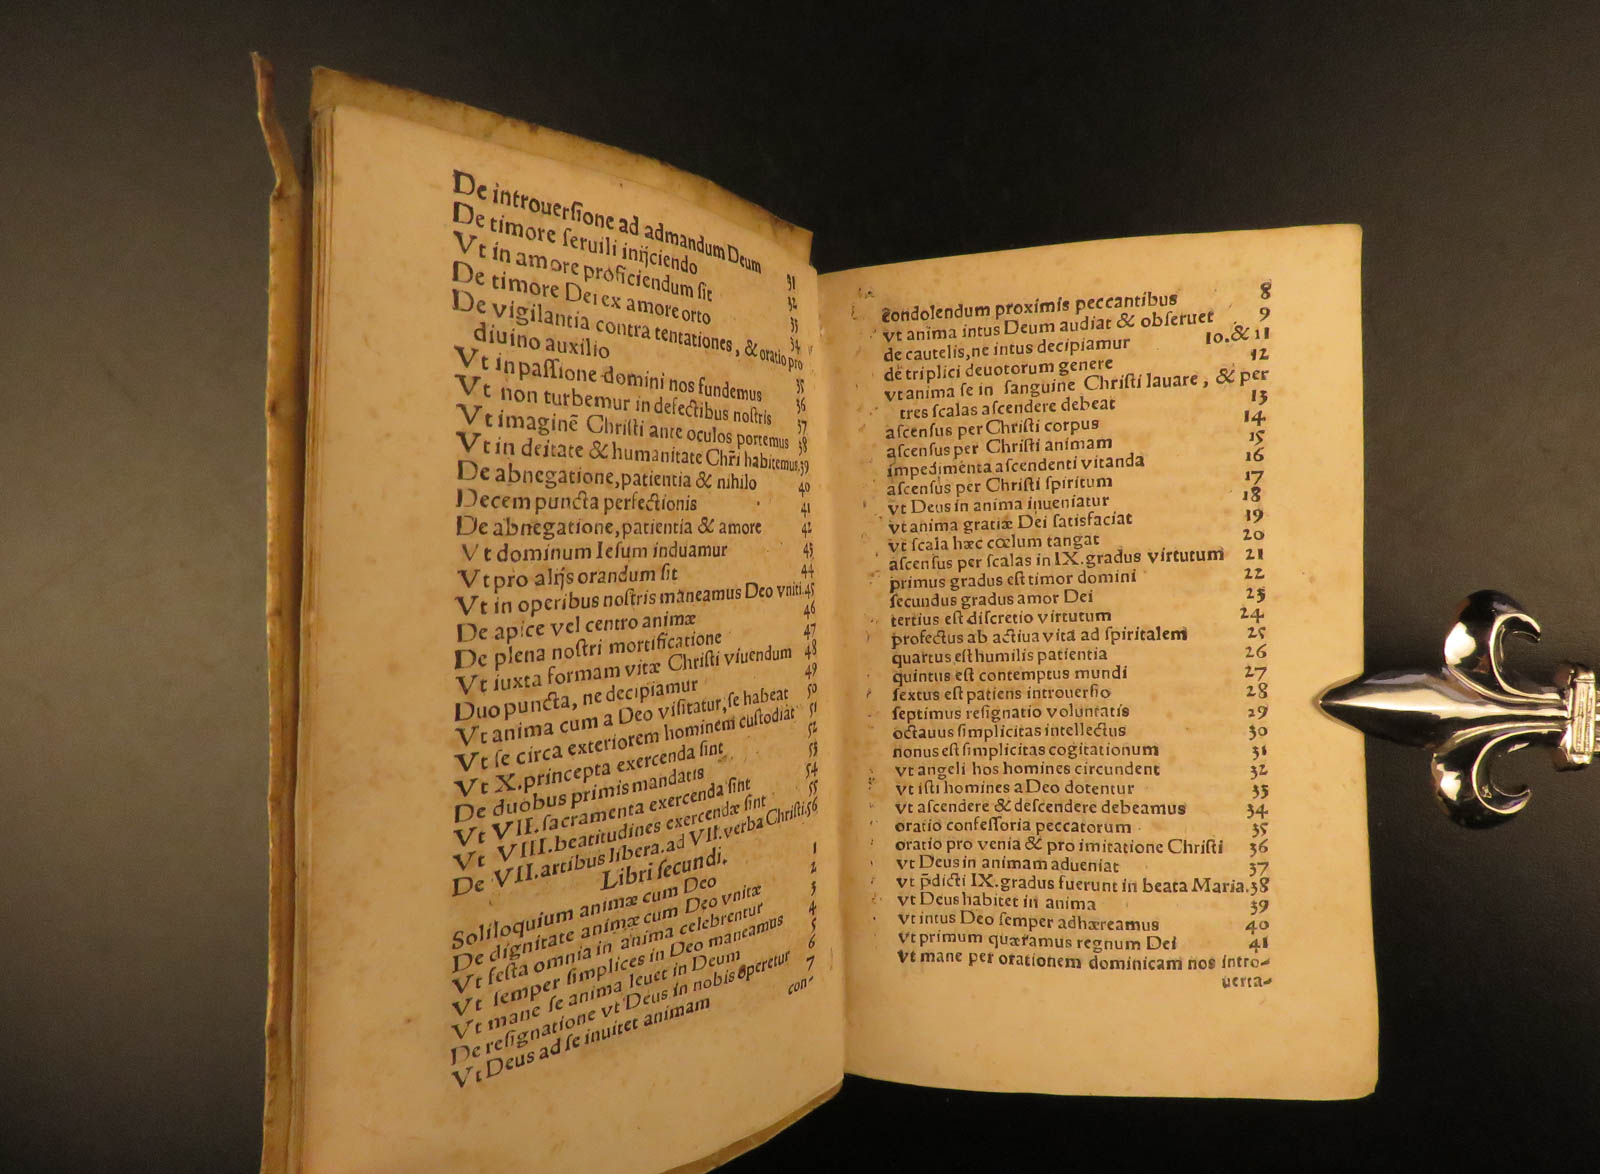 De introuersione ad admandum Deum 31
De timore seruili inijciendo 32
Vt in amore proficiendum sit 33
De timore Dei ex amore orto 34
De vigilantia contra tentationes, & oratio pro
diuino auxilio 35
Vt in passione domini nos fundemus 36
Vt non turbemur in defectibus nostris 37
Vt imaginē Christi ante oculos portemus 38
Vt in deitate & humanitate Chr̄i habitemus.39
De abnegatione, patientia & nihilo 40
Decem puncta perfectionis 41
De abnegatione, patientia & amore 42
Vt dominum Iesum induamur 43
Vt pro alijs orandum sit 44
Vt in operibus nostris maneamus Deo vniti.45
De apice vel centro animæ 46
De plena nostri mortificatione 47
Vt iuxta formam vitæ Christi viuendum 48
Duo puncta, ne decipiamur 49
Vt anima cum a Deo visitatur, se habeat 50
Vt se circa exteriorem hominem custodiat 51
Vt X. princepta exercenda sint 52
De duobus primis mandatis 53
Vt VII. sacramenta exercenda sint 54
Vt VIII. beatitudines exercendæ sint 55
De VII. artibus libera. ad VII. verba Christi.56
Libri secundi.
Soliloquium animæ cum Deo 1
De dignitate animæ cum Deo vnitæ 2
Vt festa omnia in anima celebrentur 3
Vt semper simplices in Deo maneamus 4
Vt mane se anima leuet in Deum 5
De resignatione vt Deus in nobis operetur 6
Vt Deus ad se inuitet animam 7
con-
condolendum proximis peccantibus 8
vt anima intus Deum audiat & obseruet 9
de cautelis, ne intus decipiamur 10. & 11
de triplici deuotorum genere 12
vt anima se in sanguine Christi lauare, & per
tres scalas ascendere debeat 13
ascensus per Christi corpus 14
ascensus per Christi animam 15
impedimenta ascendenti vitanda 16
ascensus per Christi spiritum 17
vt Deus in anima inueniatur 18
vt anima gratiæ Dei satisfaciat 19
vt scala hæc cœlum tangat 20
ascensus per scalas in IX. gradus virtutum 21
primus gradus est timor domini 22
secundus gradus amor Dei 23
tertius est discretio virtutum 24
profectus ab actiua vita ad spiritalem 25
quartus est humilis patientia 26
quintus est contemptus mundi 27
sextus est patiens introuersio 28
septimus resignatio voluntatis 29
octauus simplicitas intellectus 30
nonus est simplicitas cogitationum 31
vt angeli hos homines circundent 32
vt isti homines a Deo dotentur 33
vt ascendere & descendere debeamus 34
oratio confessoria peccatorum 35
oratio pro venia & pro imitatione Christi 36
vt Deus in animam adueniat 37
vt p̄dicti IX. gradus fuerunt in beata Maria.38
vt Deus habitet in anima 39
vt intus Deo semper adhæreamus 40
vt primum quæramus regnum Dei 41
vt mane per orationem dominicam nos intro-
uerta-